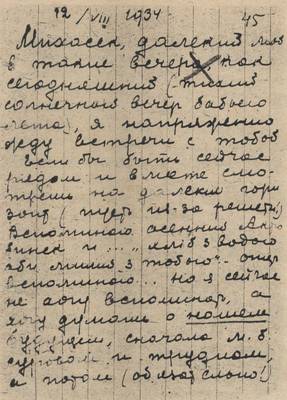 12/VIII 1934 45
Михасек, далекий мой
в такие вечера, как
сегодняшний (тихий
солнечный вечер бабьего
лета), я напряженно
жду встречи с тобой
Если бы быть сейчас
рядом и вместе смо-
треть на далекий гори
зонт (пусть из-за решетки)
Вспоминаю осенний
и ... „хліб з водою
аби милий з тобою" -
вспоминаю... но я сейчас
не могу вспоминать, а
хочу думать о нашем
будущем, сначала м. б.
суровом и трудном,
а потом (обязат. было!)